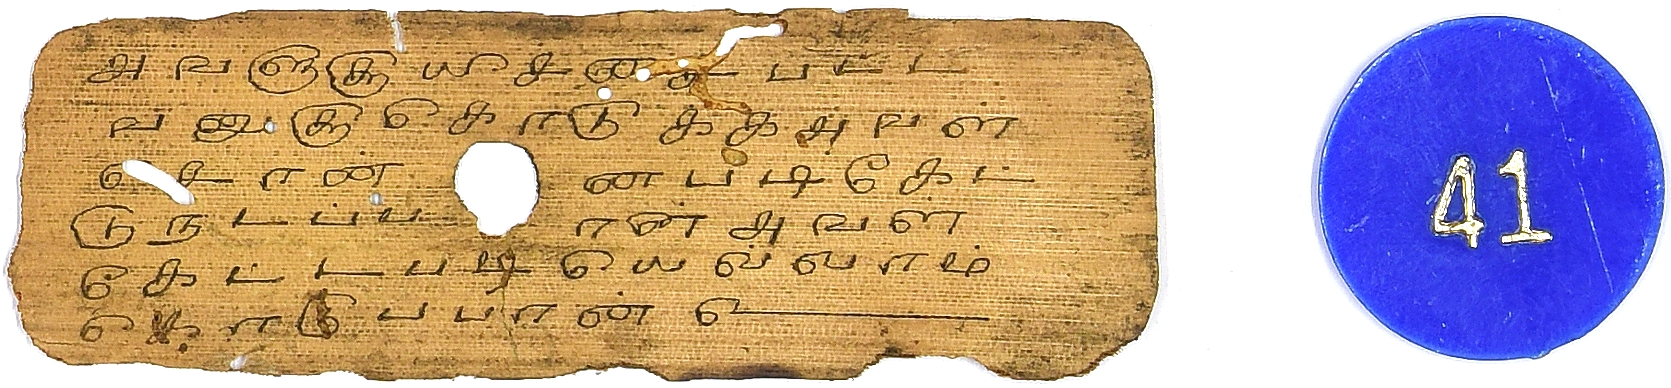 அவளுகுயிசனசபட்ட
வனுகுகெொடுககஅவள
சொன்னபடிகேட்
டுநடப்பான்அவள்
கேட்டபடியெல்லாம்
கொடுப்பான்
41